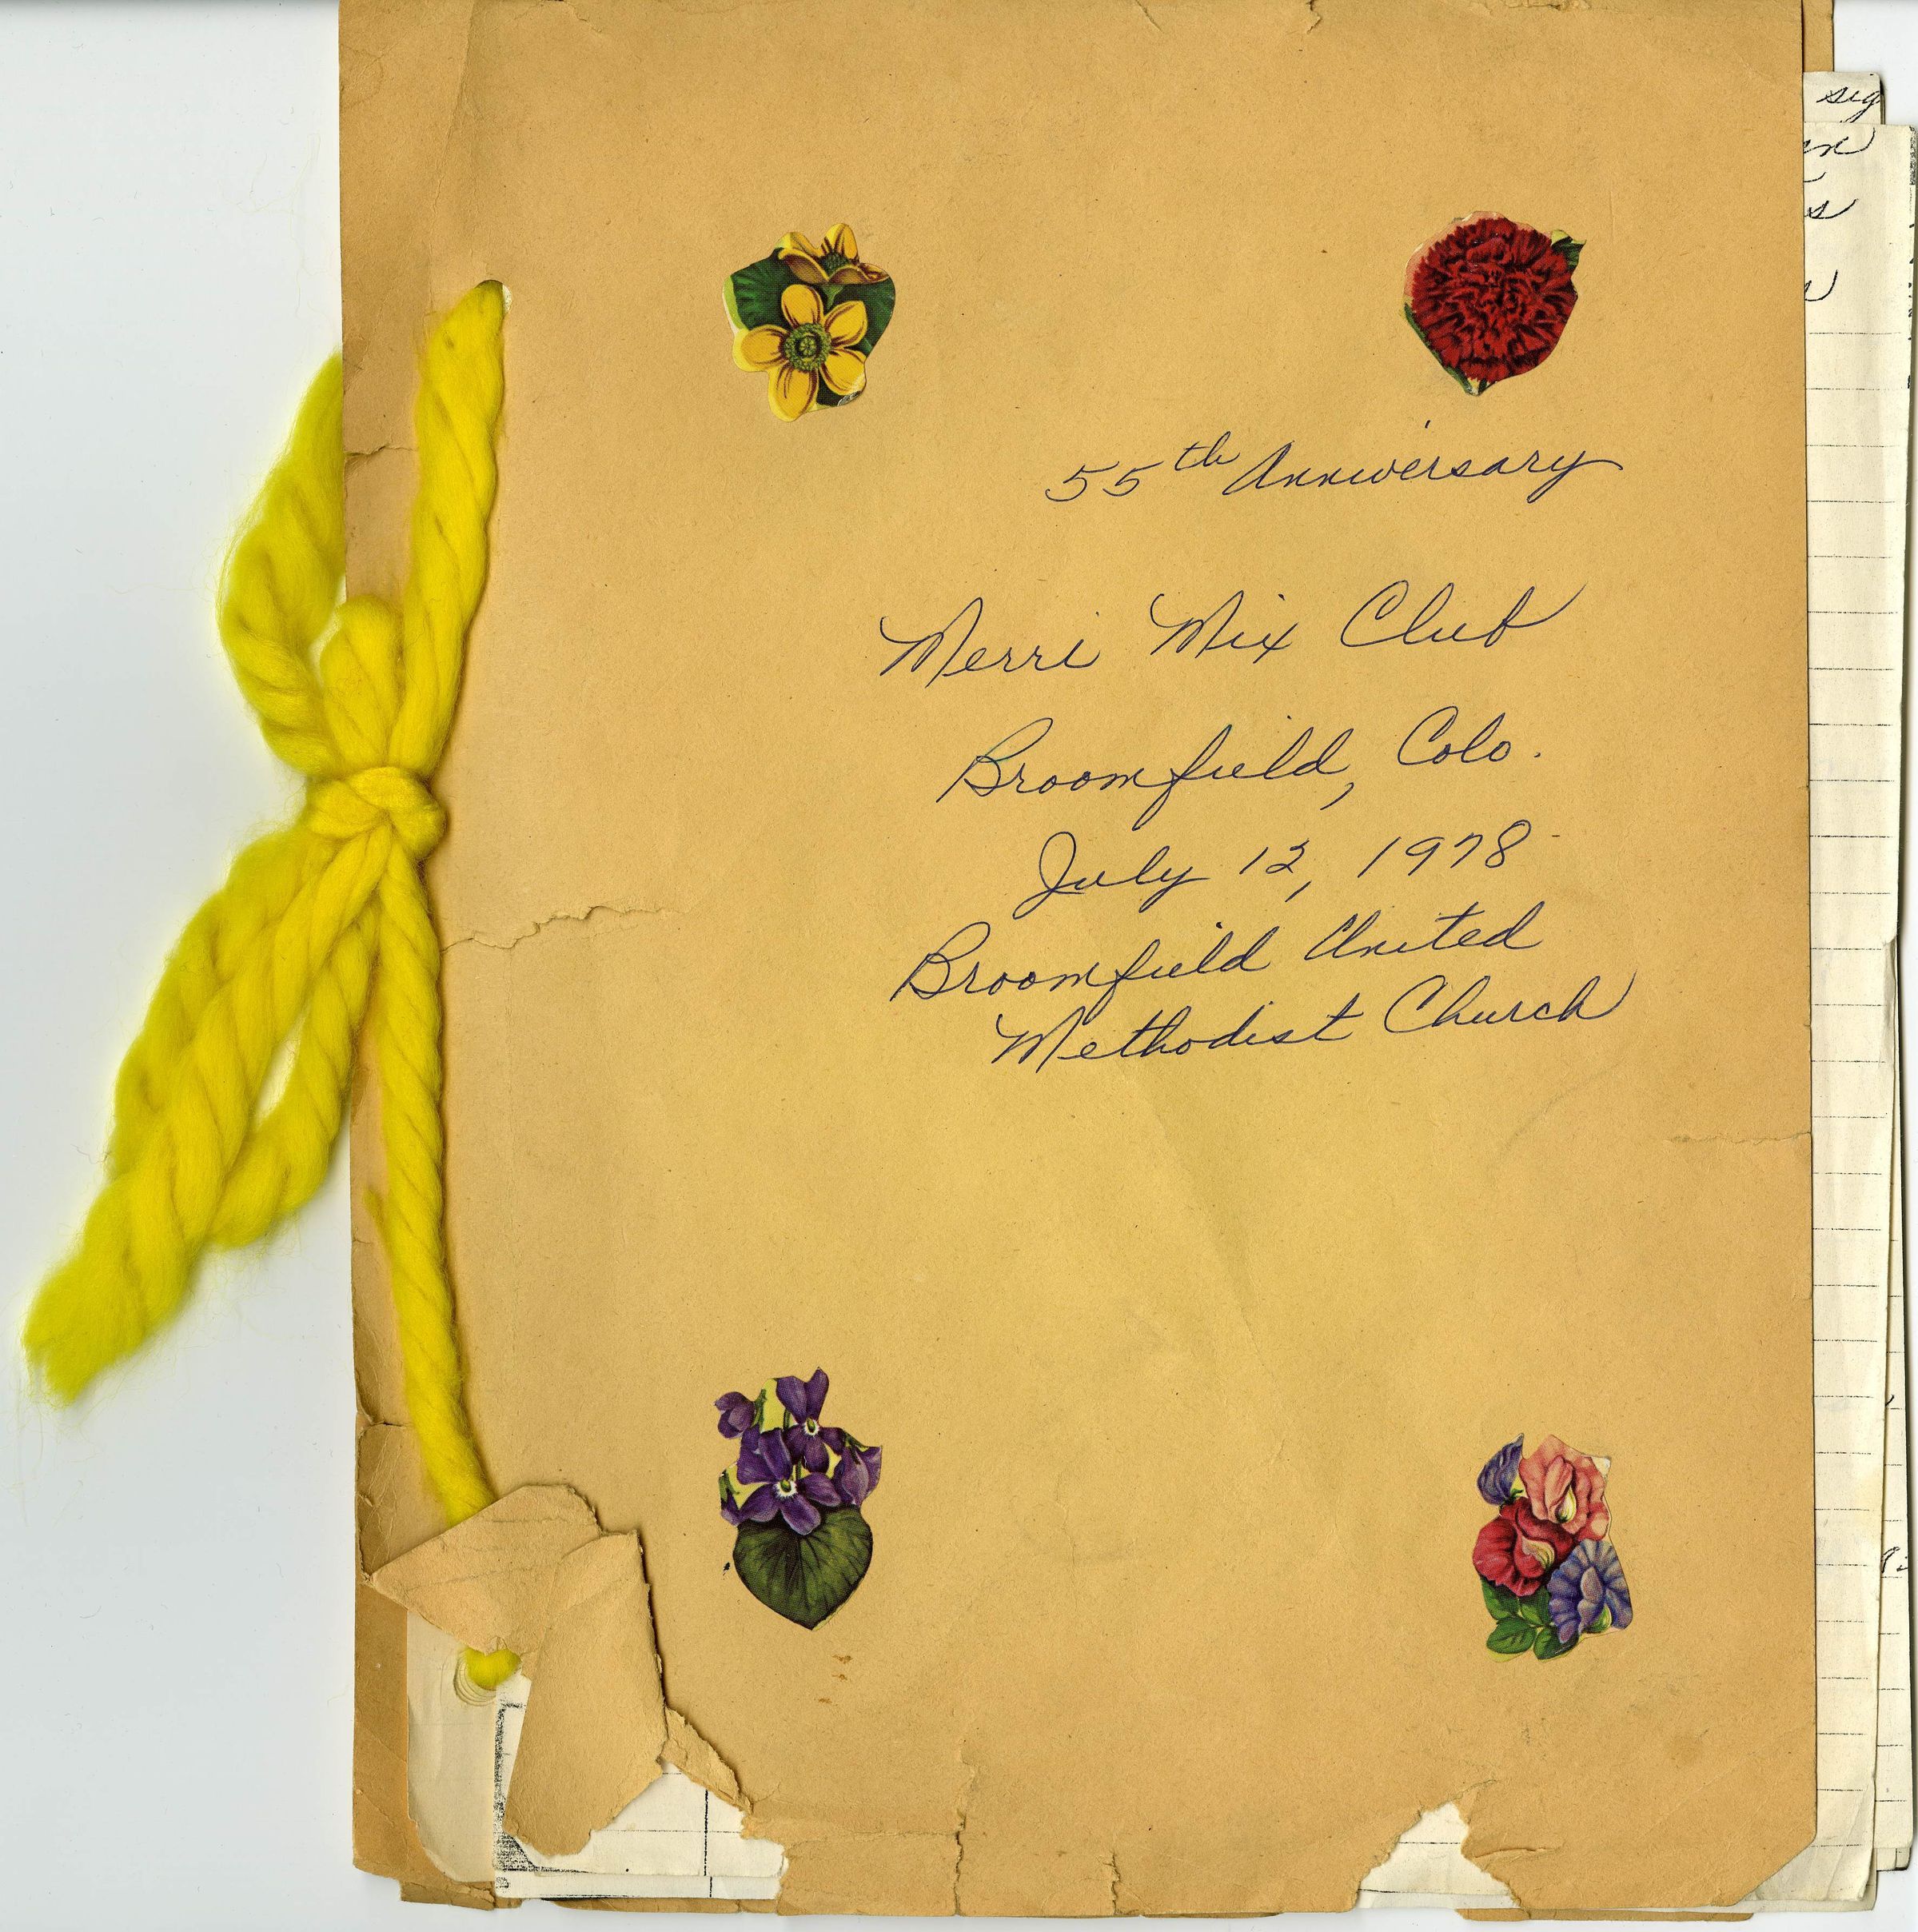 55th Anniversary
Merri Mix Club
Broomfield, Colo.
July 12, 1978
Broomfield United
Methodist Church
sig